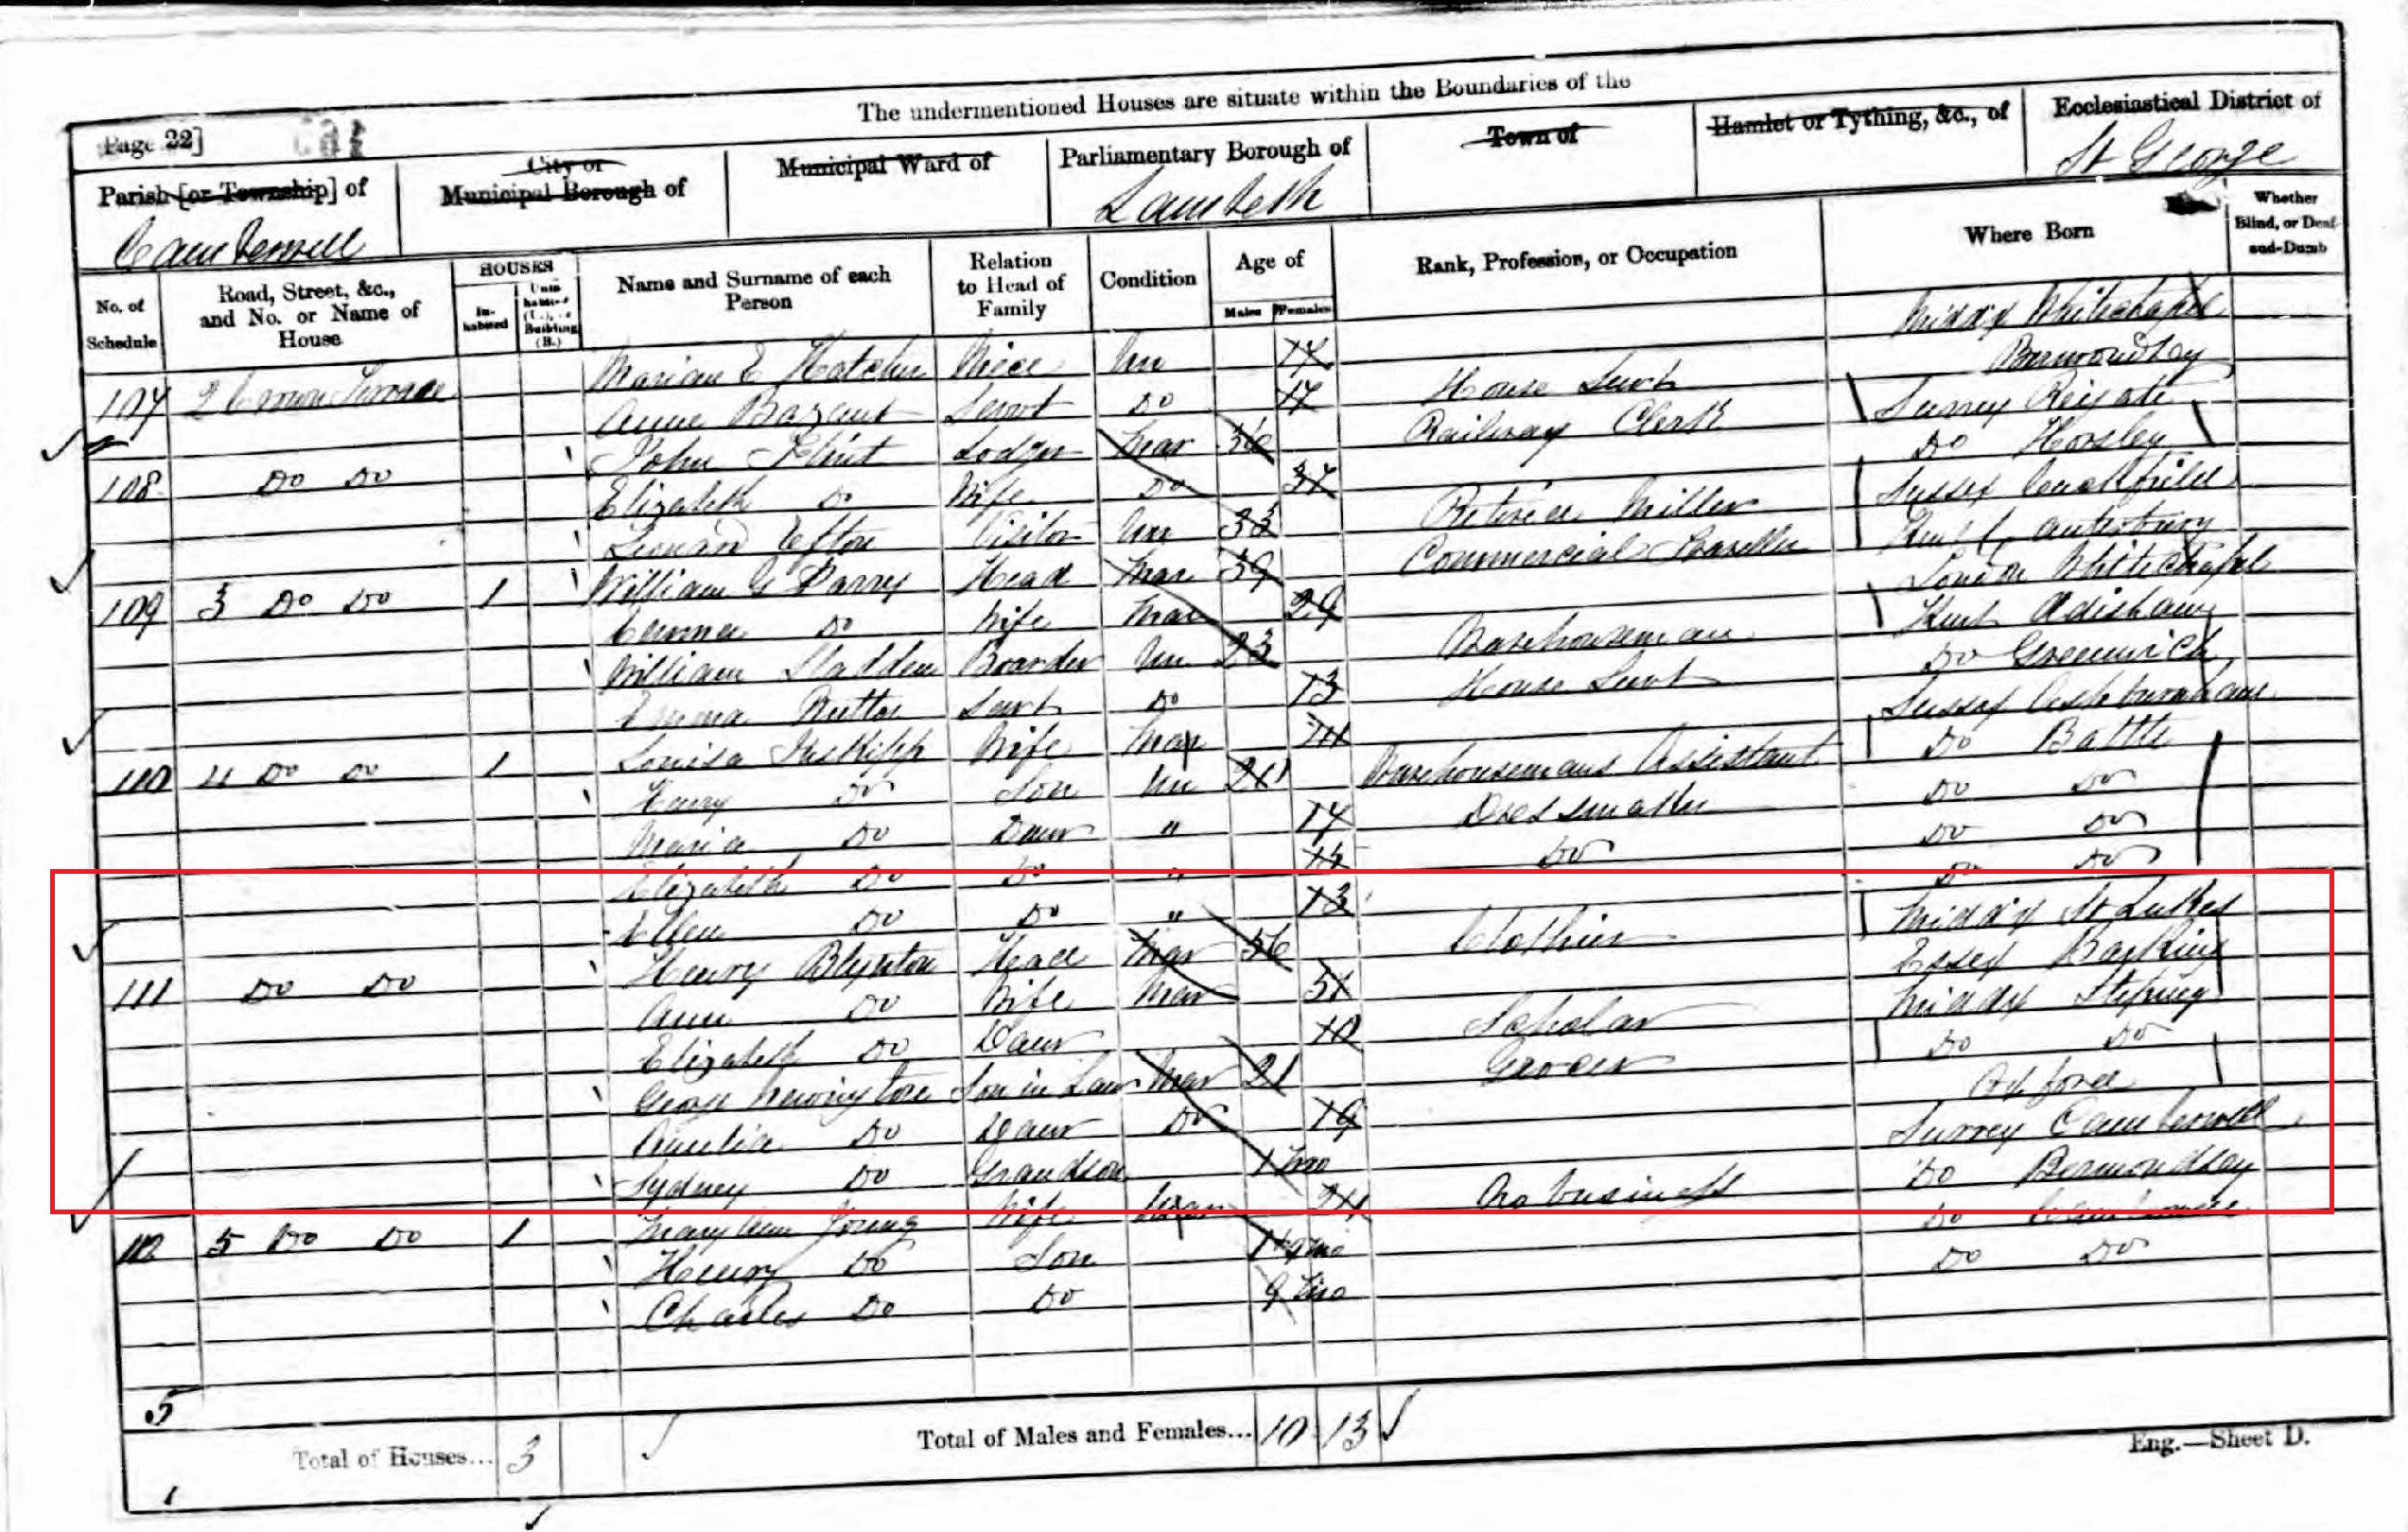 The undermentioned Houses are situate within the Boundaries of the
Page 22]
Parish [or Township] of
Camberwell
City or
Municipal Borough of
Municipal Ward of
Parliamentary Borough of
Lambeth
Town of
Hamlet or Tything, &c., of
Ecclesiastical District of
St George
No. of
Schedule
Road, Street, &c.,
and No. or Name of
House
HOUSES
In-
habited
Building
(B.)
Name and Surname of each
Person
Relation
to Head of
Family
Condition
Age of
Males Females
Rank, Profession, or Occupation
Where Born
Whether
Blind, or Deaf-
and-Dumb
107 2 Terrace Niece Un 17 Middx Whitechapel
Servt Do 17 House Servt Bermondsey
108 Do Do John Flint Lodger Mar 36 Railway Clerk Surrey Reigate
Elizabeth Do Wife Do 37 Do Horsley
Visitor Un 33 Retired Miller Sussex Cuckfield
109 3 Do Do 1 William G Parry Head Mar 39 Commercial Traveller Kent Canterbury
Emma Do Wife Mar 29 London Whitechapel
William Sladden Boarder Un 23 Warehouseman Kent Adisham
Emma Servt Do 13 House Servt Do Greenwich
110 4 Do Do 1 Louisa Inskipp Wife Mar Sussex Ashburnham
Henry Do Son Un 21 Warehousemans Assistant Do Battle
Maria Do Daur " 17 Dressmaker Do Do
Elizabeth Do Do " 15 Do Do Do
Ellen Do Do " 13 Do Do
111 Do Do Henry Blynton Head Mar 56 Clothier Middx St Lukes
Ann Do Wife Mar 51 Essex Barking
Elizabeth Do Daur 10 Scholar Middx Stepney
George Newington Son in Law Mar 21 Grocer Do Do
Do Daur Do 19
Sydney Do Grandson 1 mo Surrey Camberwell
112 5 Do Do 1 Mary Ann Young Wife Mar 24 No business Do Bermondsey
Henry Do Son Do Camberwell
Charles Do Do 9 mo Do Do
5
Total of Houses... 3
Total of Males and Females... 10 13
Eng.—Sheet D.
1